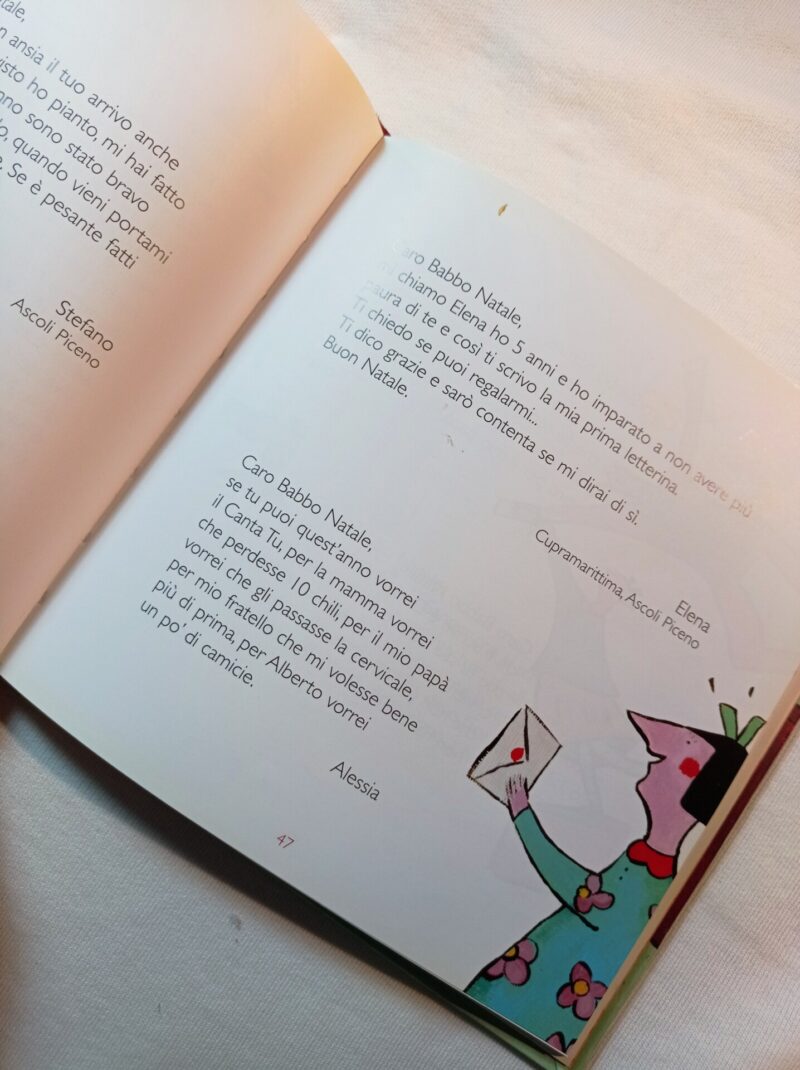 ansia il tuo arrivo anche
ho pianto, mi hai fatto
sono stato bravo
quando vieni portami
Se è pesante fatti
Stefano
Ascoli Piceno
Caro Babbo Natale,
mi chiamo Elena ho 5 anni e ho imparato a non avere più
paura di te e così ti scrivo la mia prima letterina.
Ti chiedo se puoi regalarmi...
Ti dico grazie e sarò contenta se mi dirai di sì.
Buon Natale.
Elena
Cupramarittima, Ascoli Piceno
Caro Babbo Natale,
se tu puoi quest'anno vorrei
il Canta Tu, per la mamma vorrei
che perdesse 10 chili, per il mio papà
vorrei che gli passasse la cervicale,
per mio fratello che mi volesse bene
più di prima, per Alberto vorrei
un po' di camicie.
Alessia
47